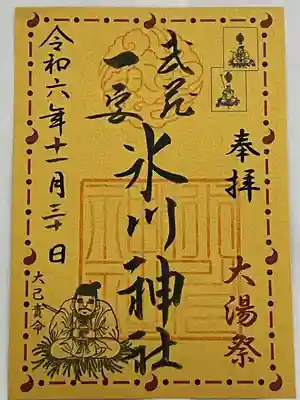 奉拝
大湯祭
武蔵
一宮
氷川神社
令和六年十一月三十日
大己貴命